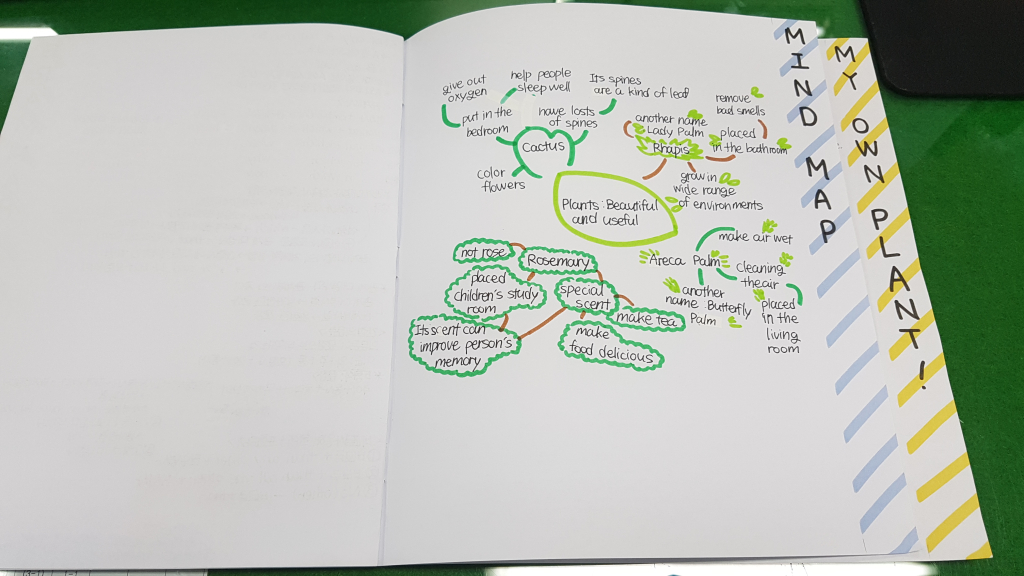 give out
oxygen
help people
sleep well
put in the
bedroom
Its spines
are a kind of leaf
have losts
of spines
Cactus
color
flowers
another name
Lady Palm
Rhapis
remove
bad smells
placed
in the bathroom
grow in
wide range
of environments
Plants: Beautiful
and useful
not rose
Rosemary
placed
children's study
room
Its scent can
improve person's
memory
special
scent
make tea
make
food delicious
Areca Palm
make air wet
Cleaning
the air
another
name Butterfly
Palm
placed
in the
living
room
MIND MAP
MY OWN PLANT!